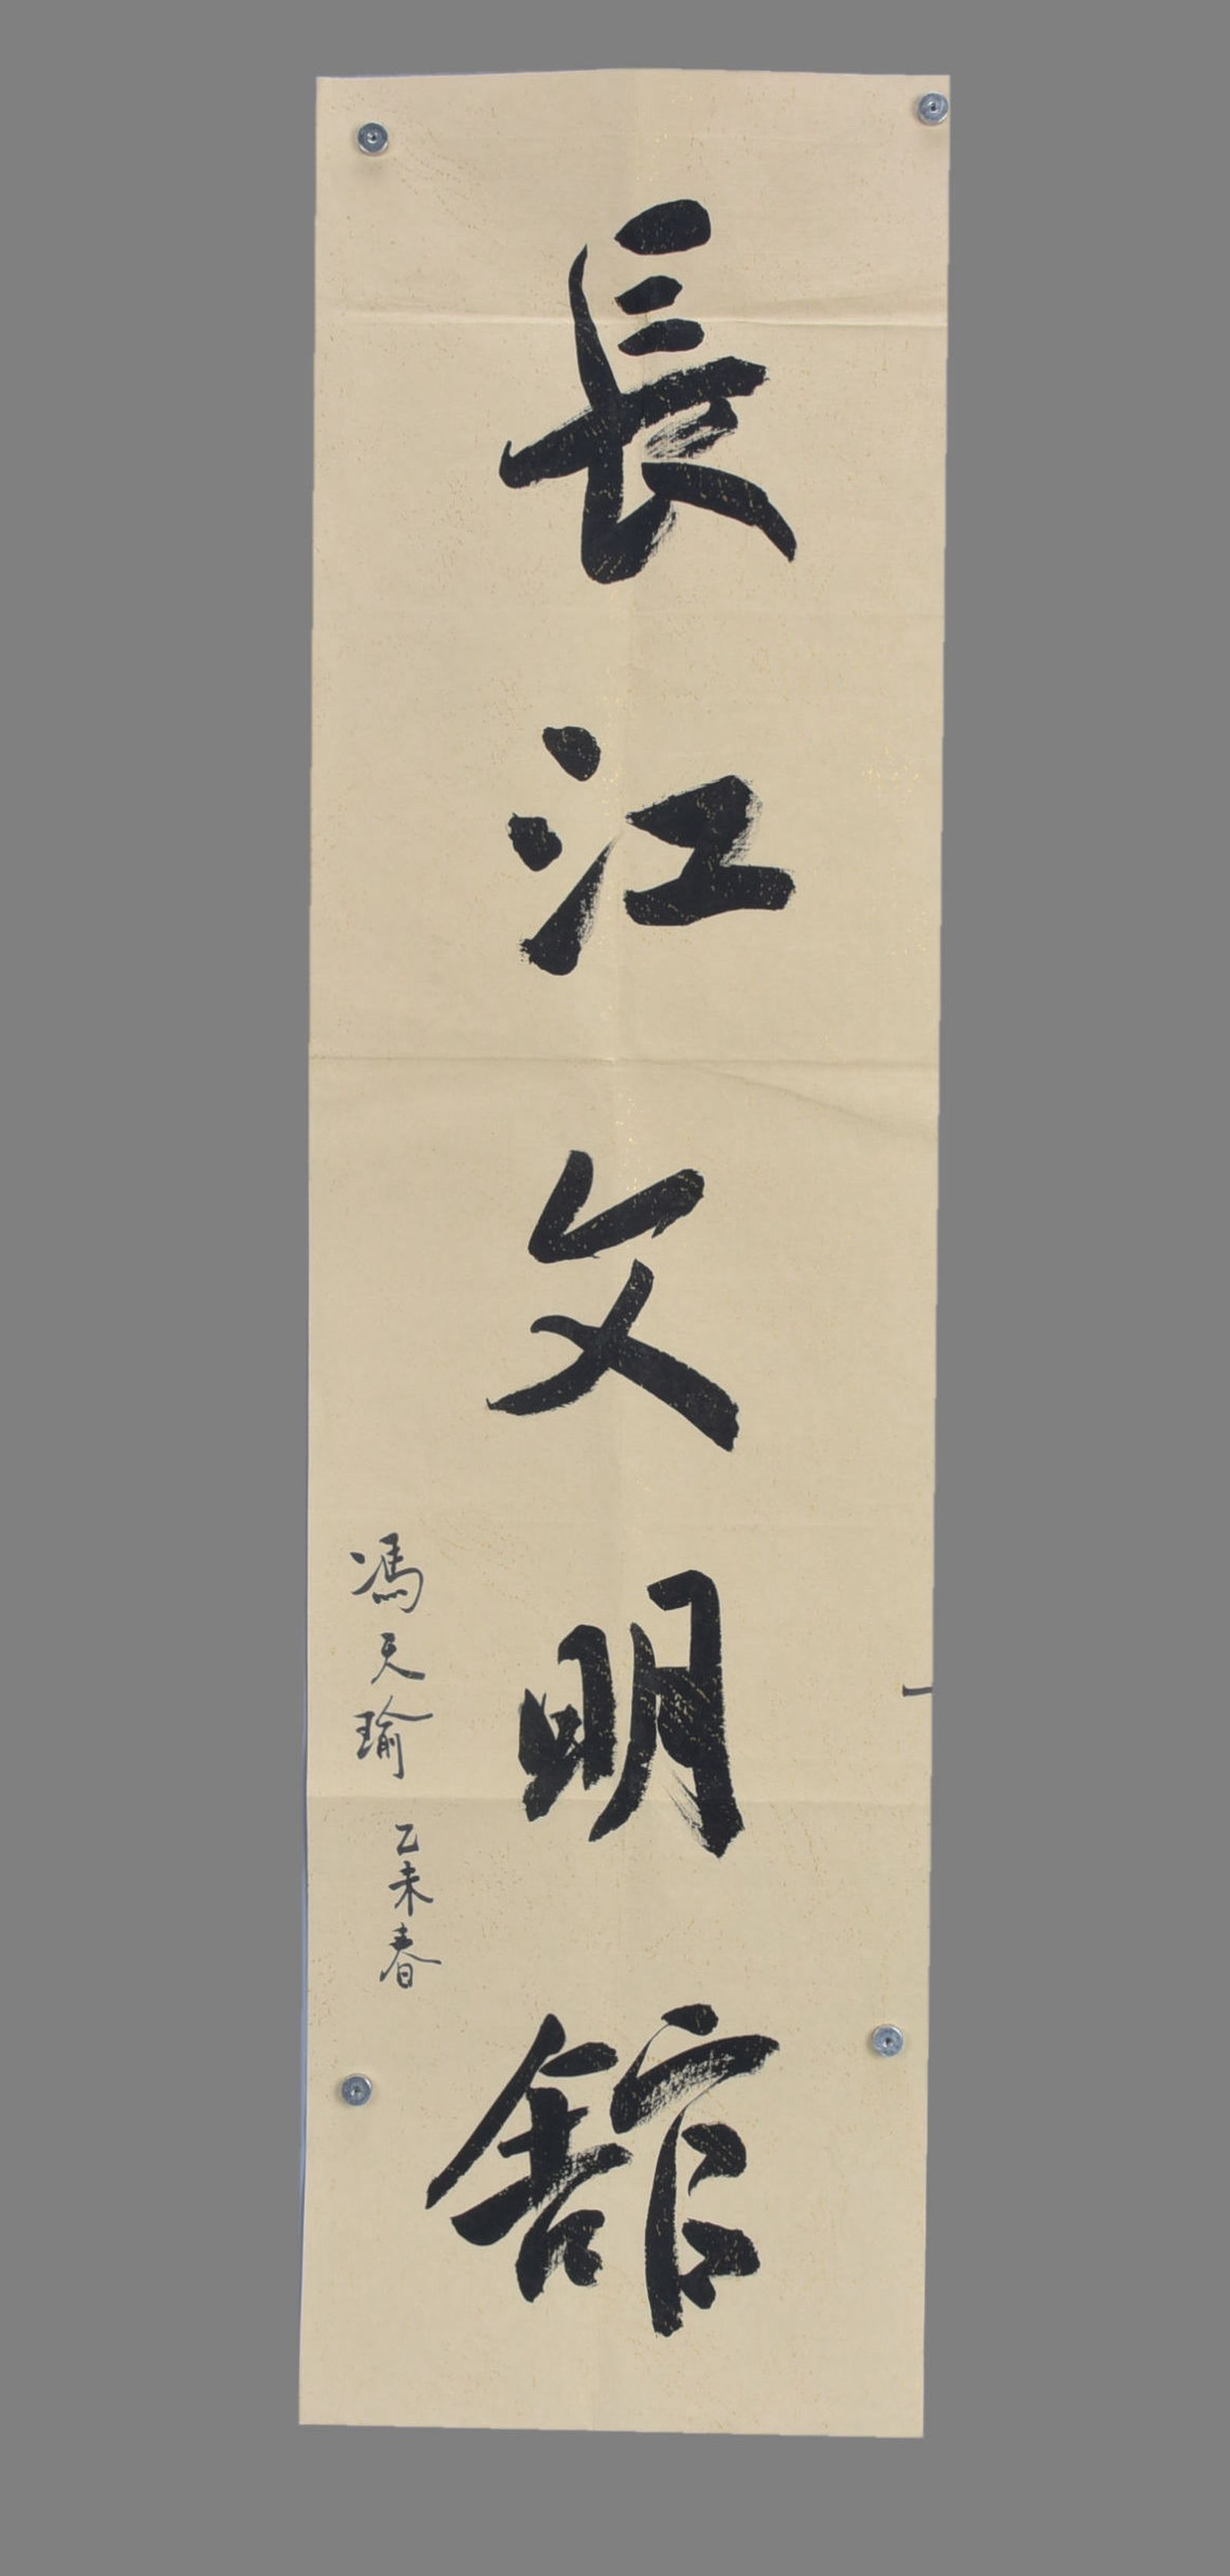 長江文明舘
馮天瑜 乙未春